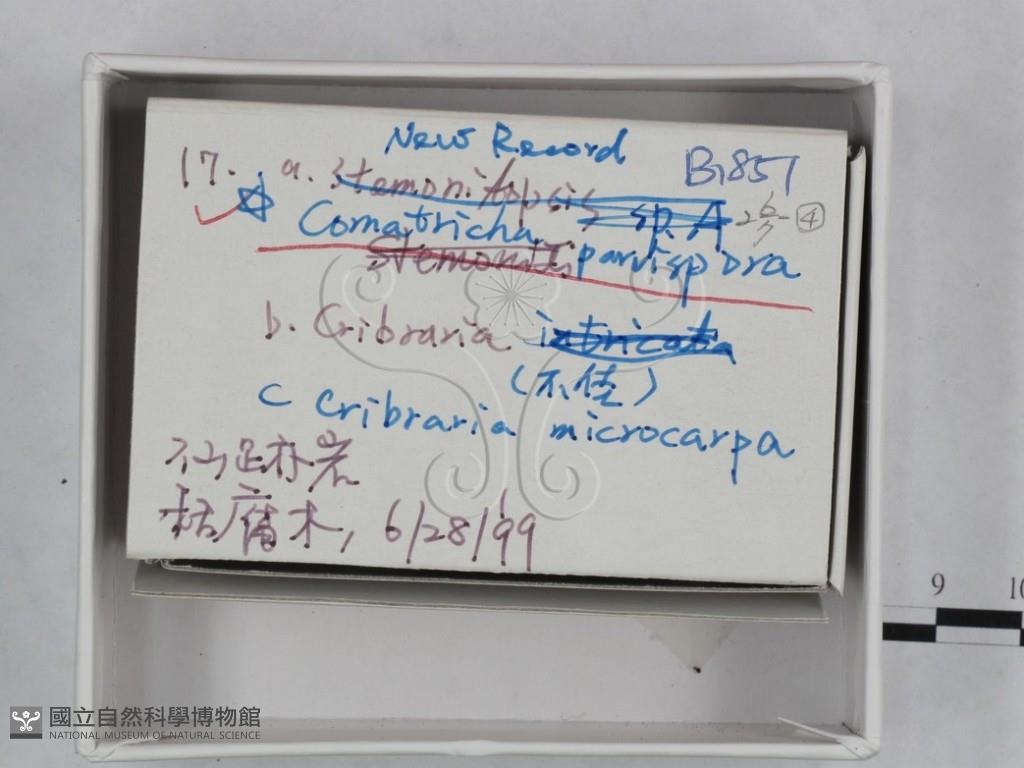 New Record
17. a. Stemonitopsis sp. A
B1851
④
Comatricha
Stemonitis parvispora
b. Cribraria intricata
(不佳)
c Cribraria microcarpa
仙足朴岩
枯腐木, 6/28/99
9 10
國立自然科學博物館
NATIONAL MUSEUM OF NATURAL SCIENCE